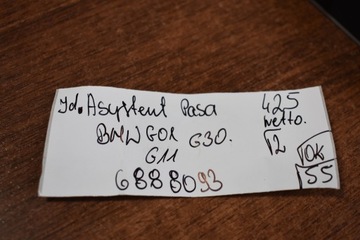 Jd. Asystent Pasa
BMW G01 G30.
G11
6888093
425
netto.
√2
OK
55